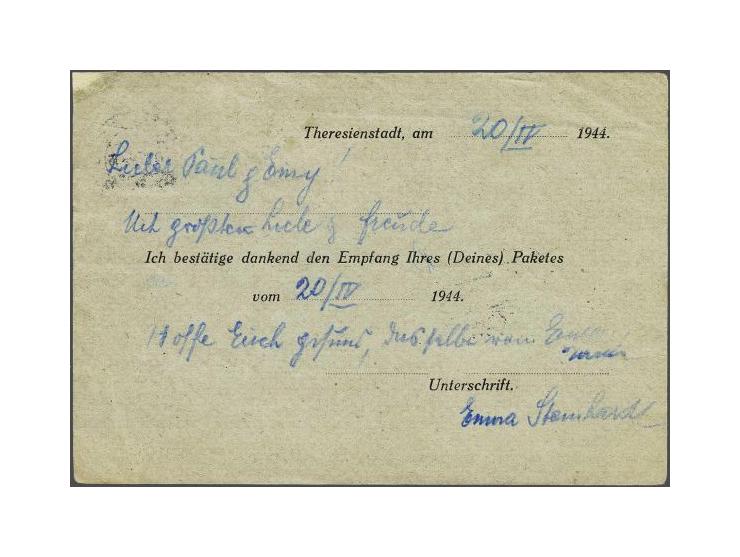 Theresienstadt, am 20/IV 1944.
Liebe Paul & Emy!
Mit größten Liebe & Freude
Ich bestätige dankend den Empfang Ihres (Deines) Paketes
vom 20/IV 1944.
Hoffe Euch gesund, dasselbe von
Unterschrift.
Emma Steinhardt